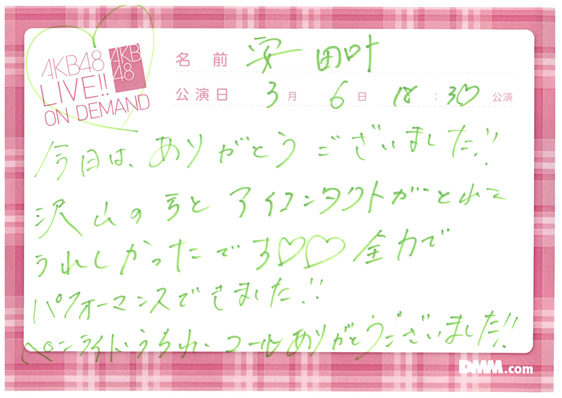 AKB48
LIVE!!
ON DEMAND
AKB
48
名前 安田叶
公演日 3月 6日 18:30 公演
今日は、ありがとうございました!!
沢山の方とアイコンタクトがとれて
うれしかったです♡♡ 全力で
パフォーマンスできました!!
ペンライト、うちわ、コールありがとうございました!!
DMM.com